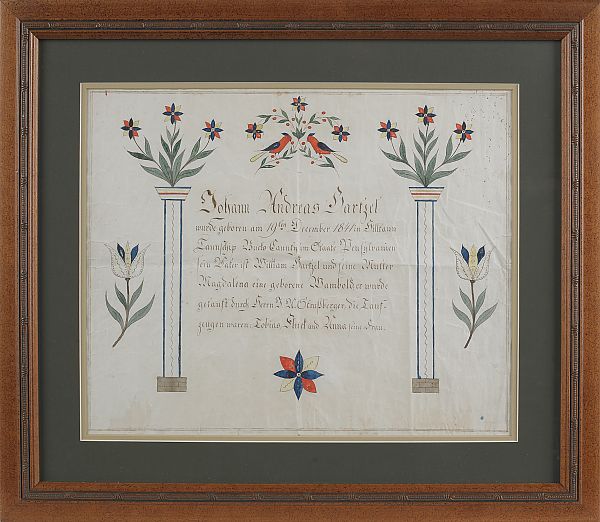 Johann Andreas Hartzel
wurde geboren am 19ten December 1841 in Hilltaun
Taunschip Bucks Caunty im Staate Pensylvanien
sein Vater ist William Hartzel und seine Mutter
Magdalena eine geborene Wambold, er wurde
getauft durch Herrn J. A. Straßberger. Die Tauf-
zeugen waren. Tobias und Anna seine Frau.